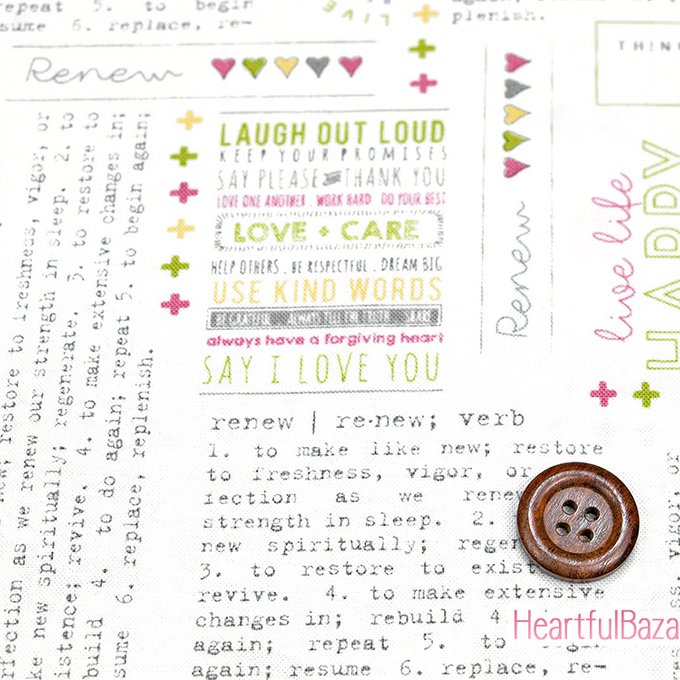 repeat 5. to begin
resume 6. replace, re-
LIVE
plenish.
Renew
THIN
LAUGH OUT LOUD
KEEP YOUR PROMISES
SAY PLEASE AND THANK YOU
LOVE ONE ANOTHER . WORK HARD DO YOUR BEST
LOVE + CARE
HELP OTHERS . BE RESPECTFUL . DREAM BIG
USE KIND WORDS
BE GRATEFUL ALWAYS TELL THE TRUTH
always have a forgiving heart
SAY I LOVE YOU
Renew
live life
HAPPY
renew | re·new; verb
1. to make like new; restore
to freshness, vigor, or
fection as we renew
strength in sleep. 2.
new spiritually; regen
3. to restore to exist
revive. 4. to make extensive
changes in; rebuild 4.
again; repeat 5. to
again; resume 6. replace, re-
new; restore to freshness, vigor, or
rfection as we renew our strength in sleep. 2. to
ke new spiritually; regenerate. 3. to restore to
istence; revive. 4. to make extensive changes in;
build 4. to do again; repeat 5. to begin again;
sume 6. replace, replenish.
HeartfulBaza